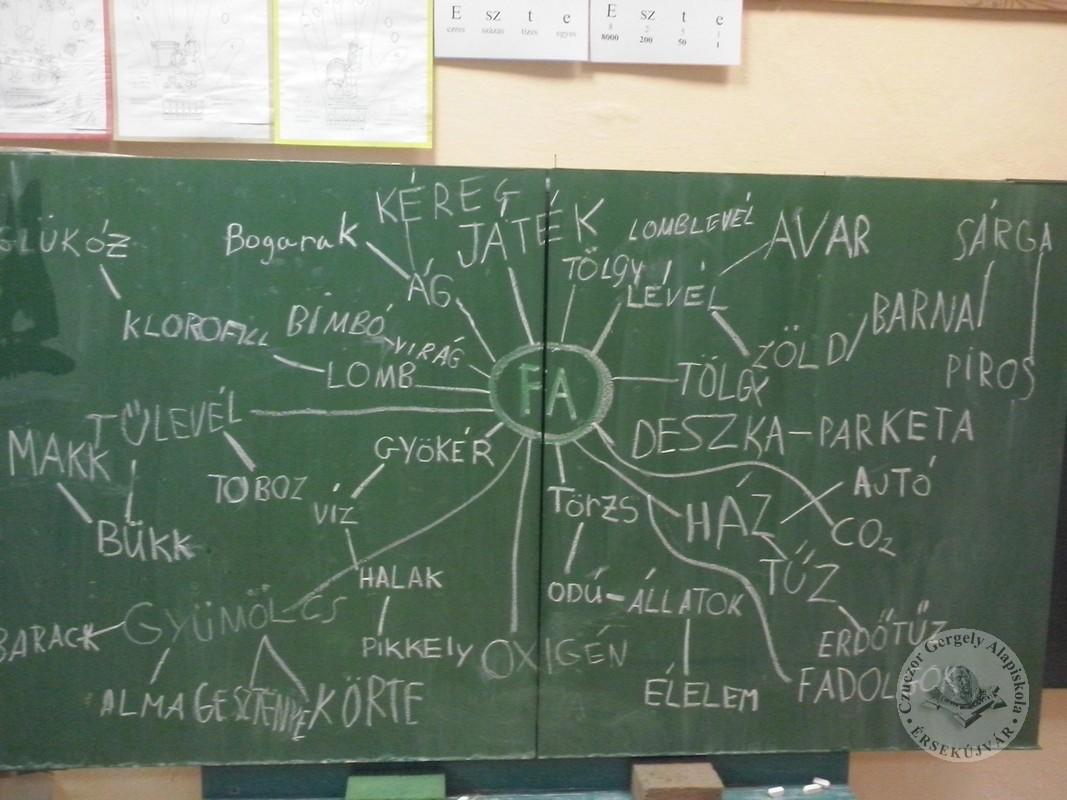 E sz t e
ezres százas tízes egyes
E sz t e
8 2 5 1
8000 200 50 1
KÉREG
JÁTÉK
LOMBLEVÉL
AVAR
SÁRGA
GLÜKÓZ
Bogarak
TÖLGY
ÁG
LEVÉL
BARNA
KLOROFILL
BIMBÓ
VIRÁG
ZÖLD
PIROS
LOMB
FA
TÖLGY
TŰLEVÉL
DESZKA-PARKETA
MAKK
GYÖKÉR
AUTÓ
TOBOZ
VÍZ
TÖRZS
HÁZ
CO2
BÜKK
HALAK
TŰZ
ODÚ-ÁLLATOK
GYÜMÖLCS
BARACK
PIKKELY
OXIGÉN
ERDŐTŰZ
ÉLELEM
FADOLGOK
ALMA
GESZTENYE
KÖRTE
Czuczor Gergely Alapiskola
ÉRSEKÚJVÁR